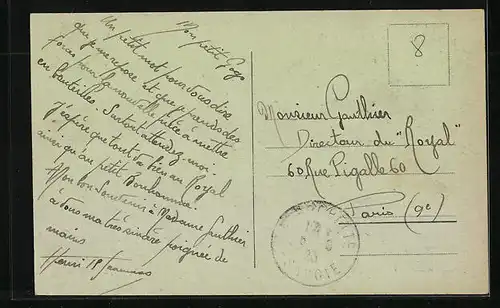 Mon petit Gogo
Un petit mot pour vous dire
que je me repose et que je prends des
forces pour la nouvelle à mettre
en bouteilles. Surtout attendez-moi.
J'espère que tout va bien au Royal
ainsi qu'au petit Bonhomme.
Mon bon Souvenir à Madame Gauthier
à vous ma très sincère poignée de
mains
Henri
8
Monsieur Gauthier
Directeur du "Royal"
60 Rue Pigalle 60
Paris (9e)